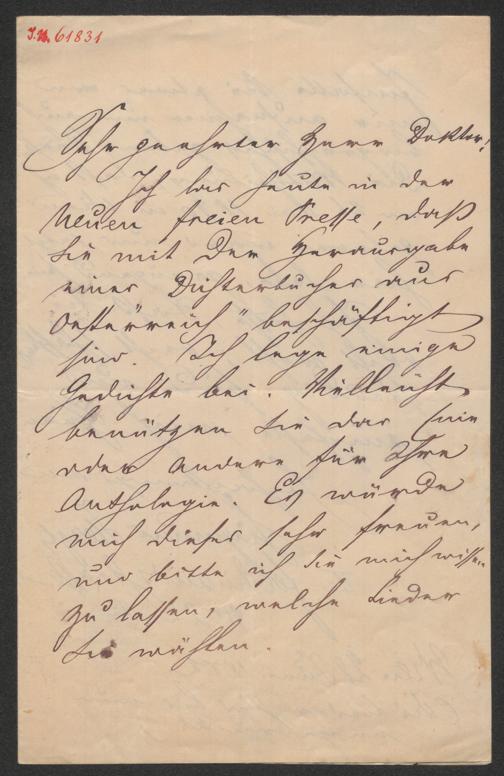 J.N. 61831
Sehr geehrter Herr Doktor!
Ich las heute in der
Neuen freien Presse, daß
Sie mit der Herausgabe
eines Dichterbuches aus
Oesterreich" beschäftigt
sind. Ich lege einige
Gedichte bei. Vielleicht
benützen Sie das eine
oder andere für Ihre
Anthologie. Es würde
mich dieses sehr freuen,
und bitte ich Sie mich wissen
zu lassen, welche Lieder
Sie wählen.